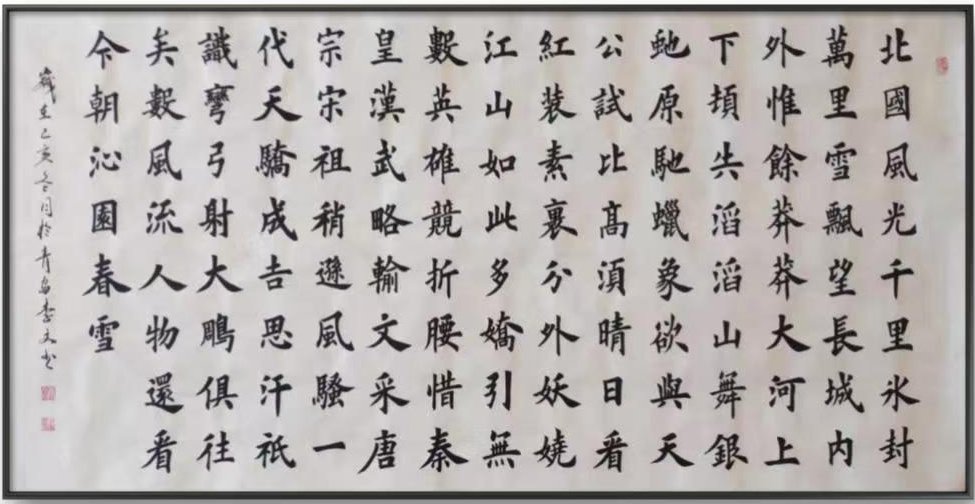 北國風光千里氷封
萬里雪飄望長城内
外惟餘莽莽大河上
下頓失滔滔山舞銀
虵原馳蠟象欲與天
公試比高須晴日看
紅裝素裹分外妖嬈
江山如此多嬌引無
數英雄競折腰惜秦
皇漢武略輸文采唐
宗宋祖稍遜風騷一
代天驕成吉思汗衹
識彎弓射大鵰俱往
矣數風流人物還看
今朝沁園春雪
歲在己亥冬月於青島李文书